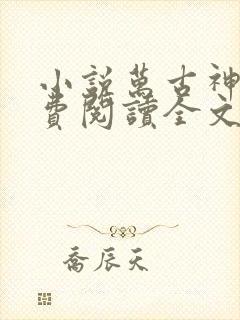 小說萬古神
費閱讀全文
喬辰天